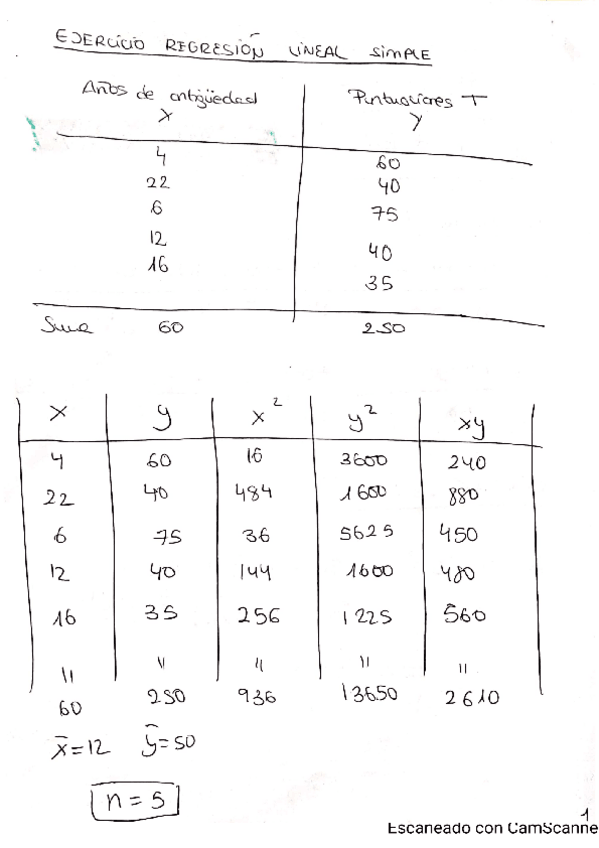 EJERCICIO REGRESIÓN LINEAL SIMPLE
Años de antigüedad Puntuaciones T
X Y
4 60
22 40
6 75
12 40
16 35
Suma 60 250
x y x² y² xy
4 60 16 3600 240
22 40 484 1600 880
6 75 36 5625 450
12 40 144 1600 480
16 35 256 1225 560
= = = = =
60 250 936 13650 2610
x̄=12 ȳ=50
n = 5
1
Escaneado con CamScanne